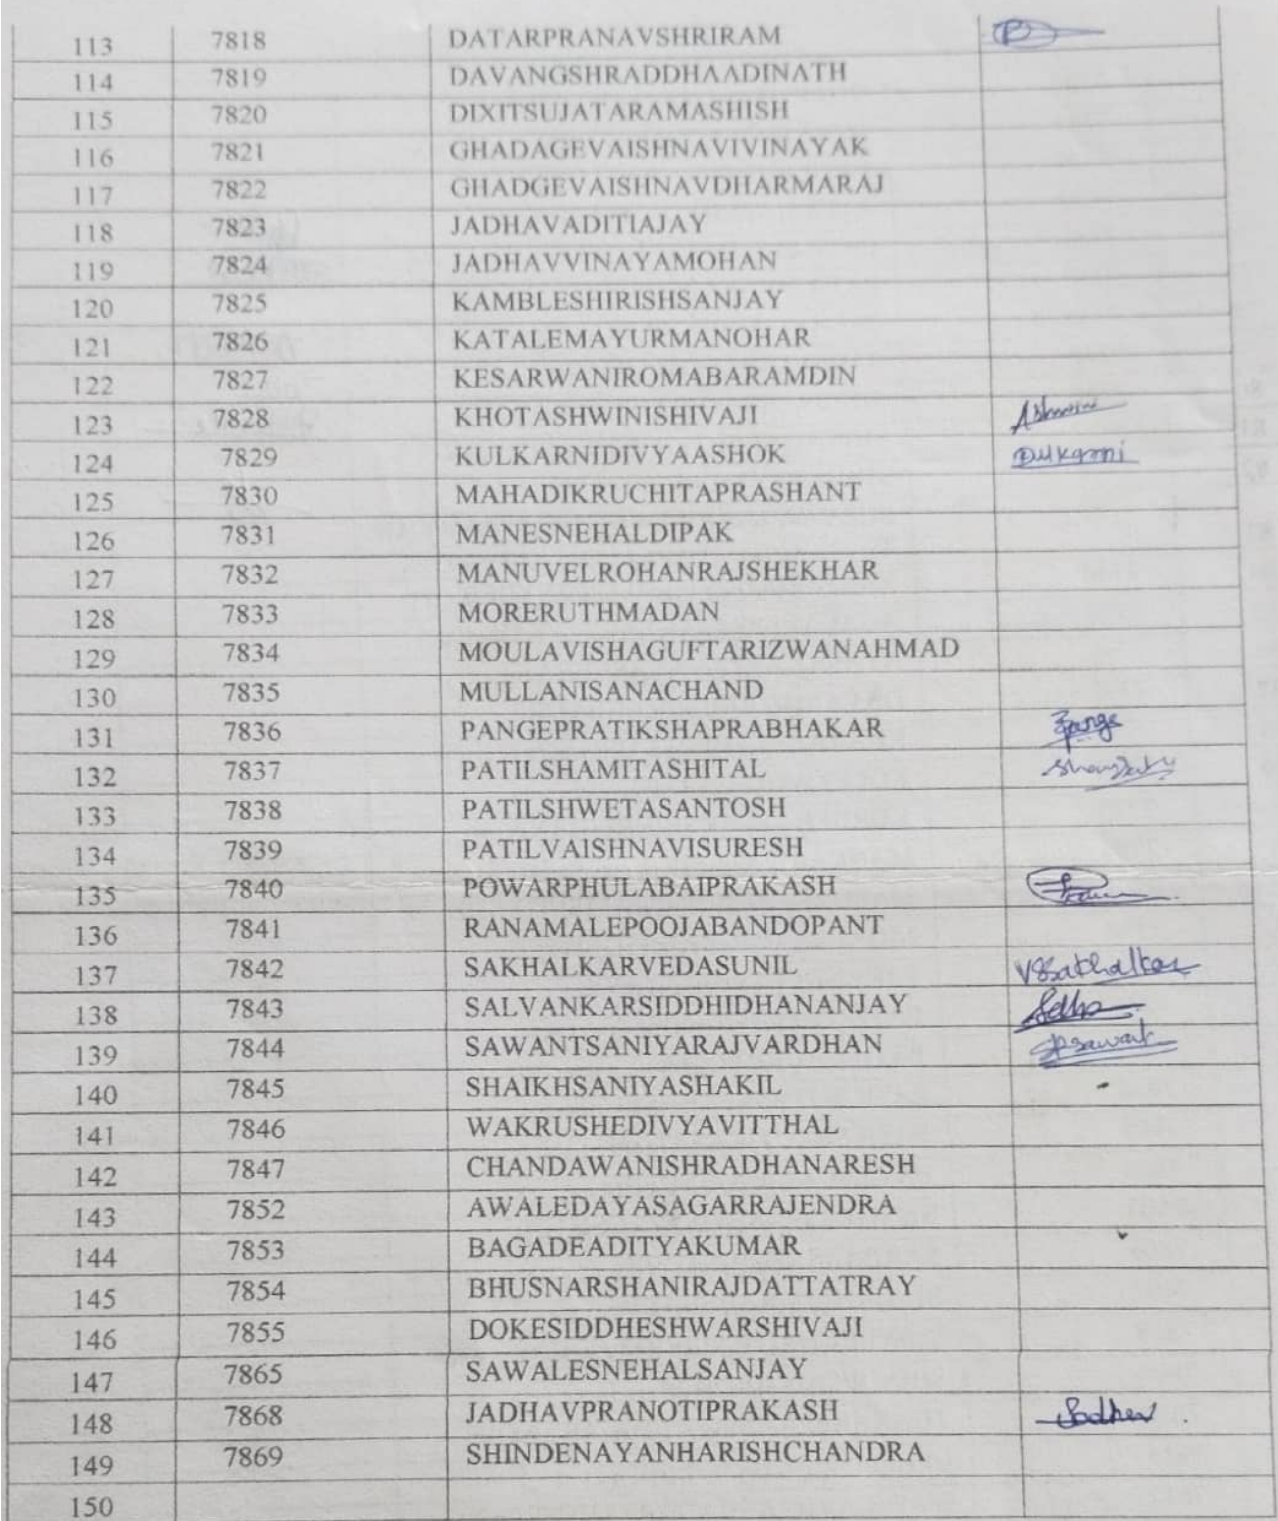 113 7818 DATARPRANAVSHRIRAM
114 7819 DAVANGSHRADDHAADINATH
115 7820 DIXITSUJATARAMASHISH
116 7821 GHADAGEVAISHNAVIVINAYAK
117 7822 GHADGEVAISHNAVDHARMARAJ
118 7823 JADHAVADITIAJAY
119 7824 JADHAVVINAYAMOHAN
120 7825 KAMBLESHIRISHSANJAY
121 7826 KATALEMAYURMANOHAR
122 7827 KESARWANIROMABARAMDIN
123 7828 KHOTASHWINISHIVAJI
124 7829 KULKARNIDIVYAASHOK
125 7830 MAHADIKRUCHITAPRASHANT
126 7831 MANESNEHALDIPAK
127 7832 MANUVELROHANRAJSHEKHAR
128 7833 MORERUTHMADAN
129 7834 MOULAVISHAGUFTARIZWANAHMAD
130 7835 MULLANISANACHAND
131 7836 PANGEPRATIKSHAPRABHAKAR
132 7837 PATILSHAMITASHITAL
133 7838 PATILSHWETASANTOSH
134 7839 PATILVAISHNAVISURESH
135 7840 POWARPHULABAIPRAKASH
136 7841 RANAMALEPOOJABANDOPANT
137 7842 SAKHALKARVEDASUNIL VSSakhalkar
138 7843 SALVANKARSIDDHIDHANANJAY
139 7844 SAWANTSANIYARAJVARDHAN
140 7845 SHAIKHSANIYASHAKIL
141 7846 WAKRUSHEDIVYAVITTHAL
142 7847 CHANDAWANISHRADHANARESH
143 7852 AWALEDAYASAGARRAJENDRA
144 7853 BAGADEADITYAKUMAR
145 7854 BHUSNARSHANIRAJDATTATRAY
146 7855 DOKESIDDHESHWARSHIVAJI
147 7865 SAWALESNEHALSANJAY
148 7868 JADHAVPRANOTIPRAKASH
149 7869 SHINDENAYANHARISHCHANDRA
150